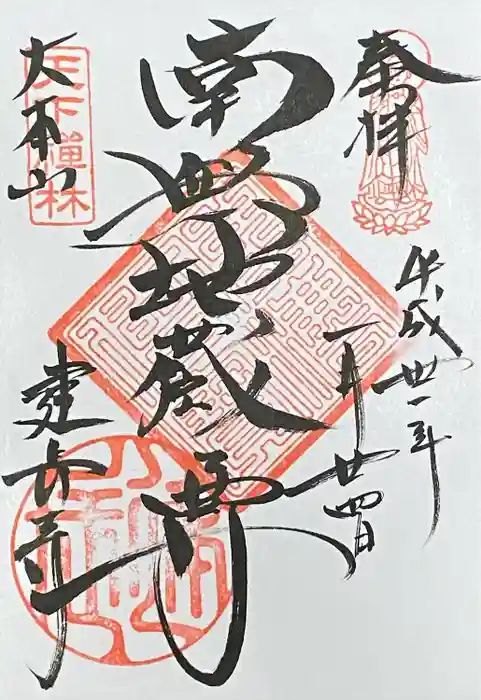 奉拝
平成卅一年
一月廿四日
南無地蔵尊
天下禅林
大本山
建長寺